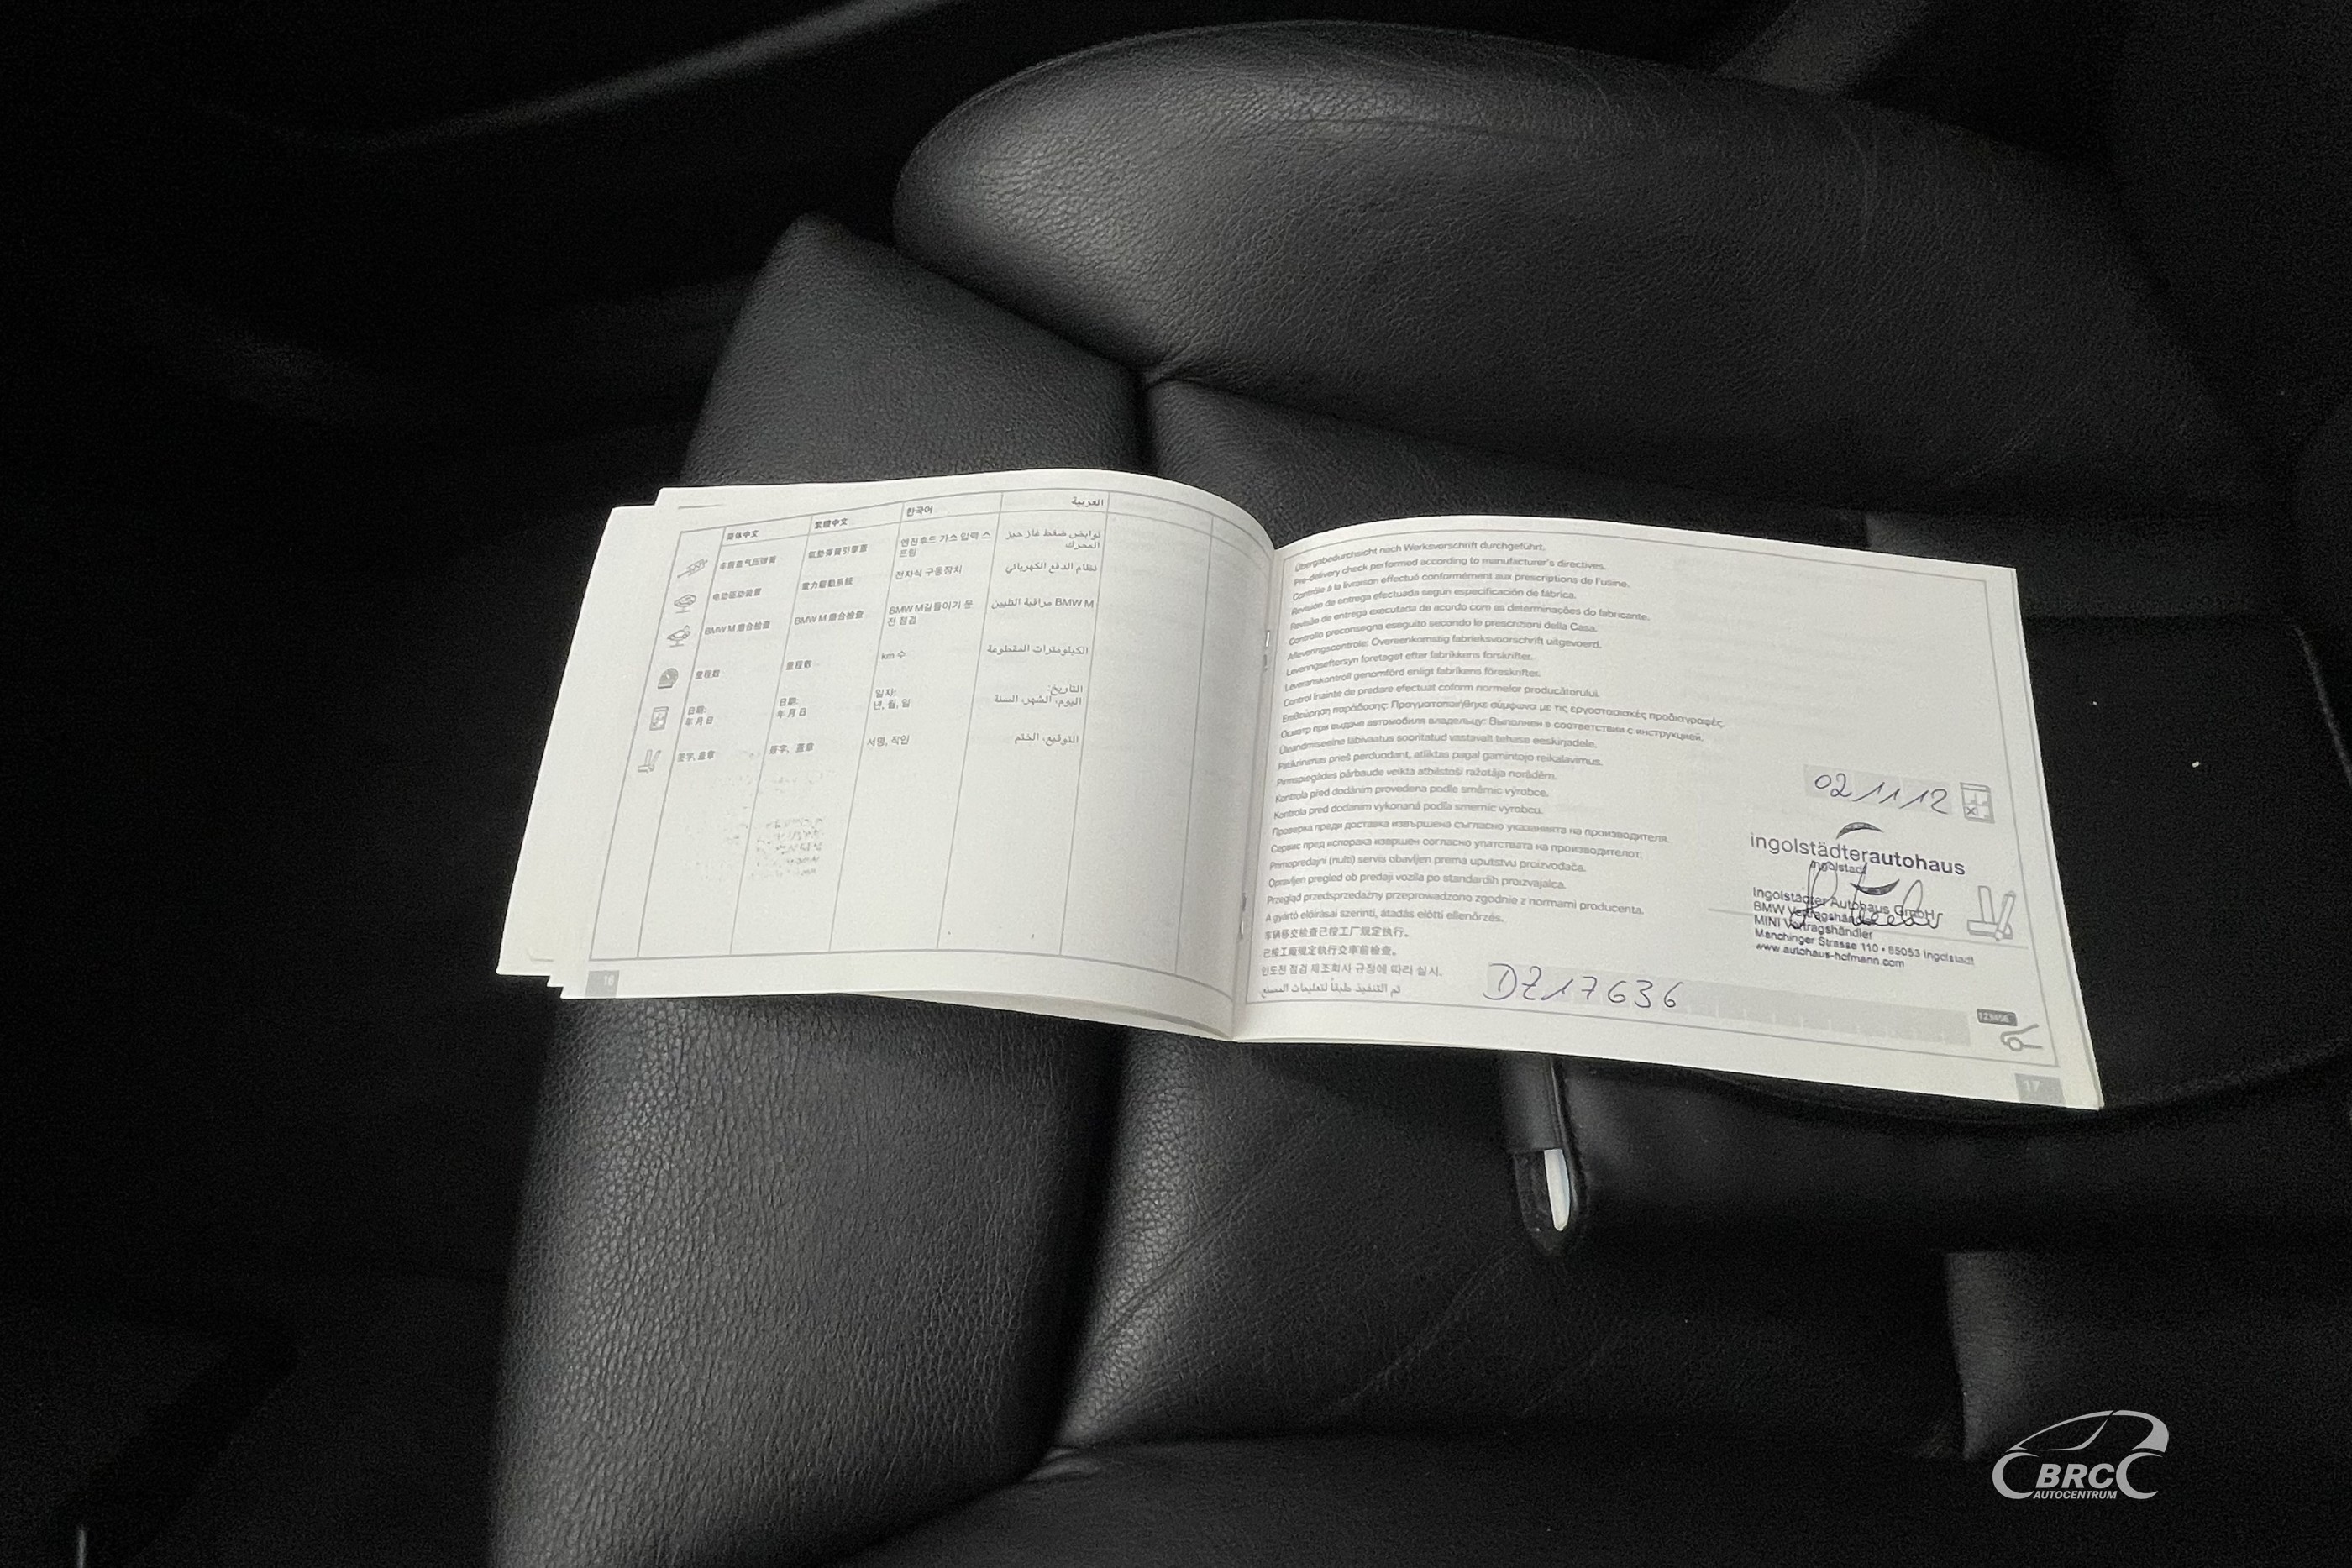 简体中文
繁體中文
한국어
العربية
车前盖气压弹簧
氣動彈簧引擎蓋
엔진후드 가스 압력 스
프링
نوابض ضغط غاز حيز
المحرك
电动驱动装置
電力驅動系統
전자식 구동장치
نظام الدفع الكهربائي
BMW M 磨合检查
BMW M 磨合檢查
BMW M길들이기 운
전 점검
BMW M مراقبة التليين
里程数
里程數
km 수
الكيلومترات المقطوعة
日期:
年月日
日期:
年月日
일자:
년, 월, 일
التاريخ:
اليوم، الشهر، السنة
签字, 盖章
簽字, 蓋章
서명, 직인
التوقيع، الختم
16
Übergabedurchsicht nach Werksvorschrift durchgeführt.
Pre-delivery check performed according to manufacturer's directives.
Contrôle à la livraison effectué conformément aux prescriptions de l'usine.
Revisión de entrega efectuada segun especificación de fábrica.
Revisão de entrega executada de acordo com as determinações do fabricante.
Controllo preconsegna eseguito secondo le prescrizioni della Casa.
Afleveringscontrole: Overeenkomstig fabrieksvoorschrift uitgevoerd.
Leveringseftersyn foretaget efter fabrikkens forskrifter.
Leveranskontroll genomförd enligt fabrikens föreskrifter.
Control înainte de predare efectuat coform normelor producătorului.
Επιθεώρηση παράδοσης: Πραγματοποιήθηκε σύμφωνα με τις εργοστασιακές προδιαγραφές.
Осмотр при выдаче автомобиля владельцу: Выполнен в соответствии с инструкцией.
Üleandmiseelne läbivaatus sooritatud vastavalt tehase eeskirjadele.
Patikrinimas prieš perduodant, atliktas pagal gamintojo reikalavimus.
Pirmspiegādes pārbaude veikta atbilstoši ražotāja norādēm.
Kontrola před dodáním provedena podle směrnic výrobce.
Kontrola pred dodanim vykonaná podľa smerníc výrobcu.
Проверка преди доставка извършена съгласно указанията на производителя.
Сервис пред испорака извршен согласно упатствата на производителот.
Primopredajni (nulti) servis obavljen prema uputstvu proizvođača.
Opravljen pregled ob predaji vozila po standardih proizvajalca.
Przegląd przedsprzedażny przeprowadzono zgodnie z normami producenta.
A gyártó előírásai szerinti, átadás előtti ellenőrzés.
车辆移交检查已按工厂规定执行。
已按工廠規定執行交車前檢查。
인도전 점검 제조회사 규정에 따라 실시.
تم التنفيذ طبقاً لتعليمات المصنع
02 11 12
ingolstädterautohaus
Ingolstadt
Ingolstädter Autohaus GmbH
BMW Vertragshändler
MINI Vertragshändler
Manchinger Strasse 110 • 85053 Ingolstadt
www.autohaus-hofmann.com
DZ17636
123456
17
BRC
AUTOCENTRUM